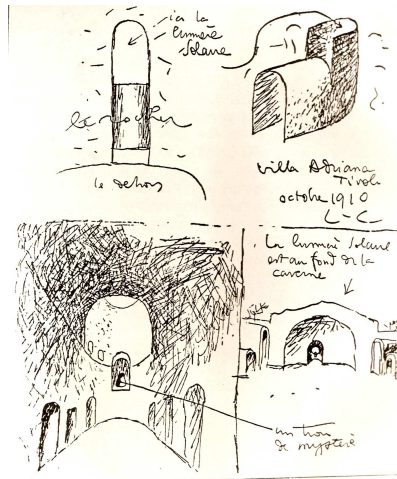 ici la
lumière
Solaire
le rocher
le dehors
Villa Adriana
Tivoli
octobre 1910
L-C
La lumière Solaire
est au fond de la
caverne
un trou
de mystère